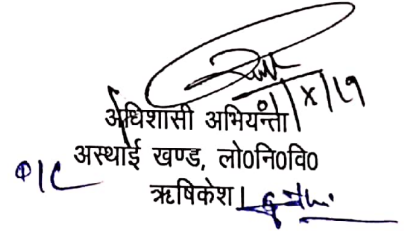 01/X/19
अधिशासी अभियन्ता
अस्थाई खण्ड, लो0नि0वि0
ऋषिकेश